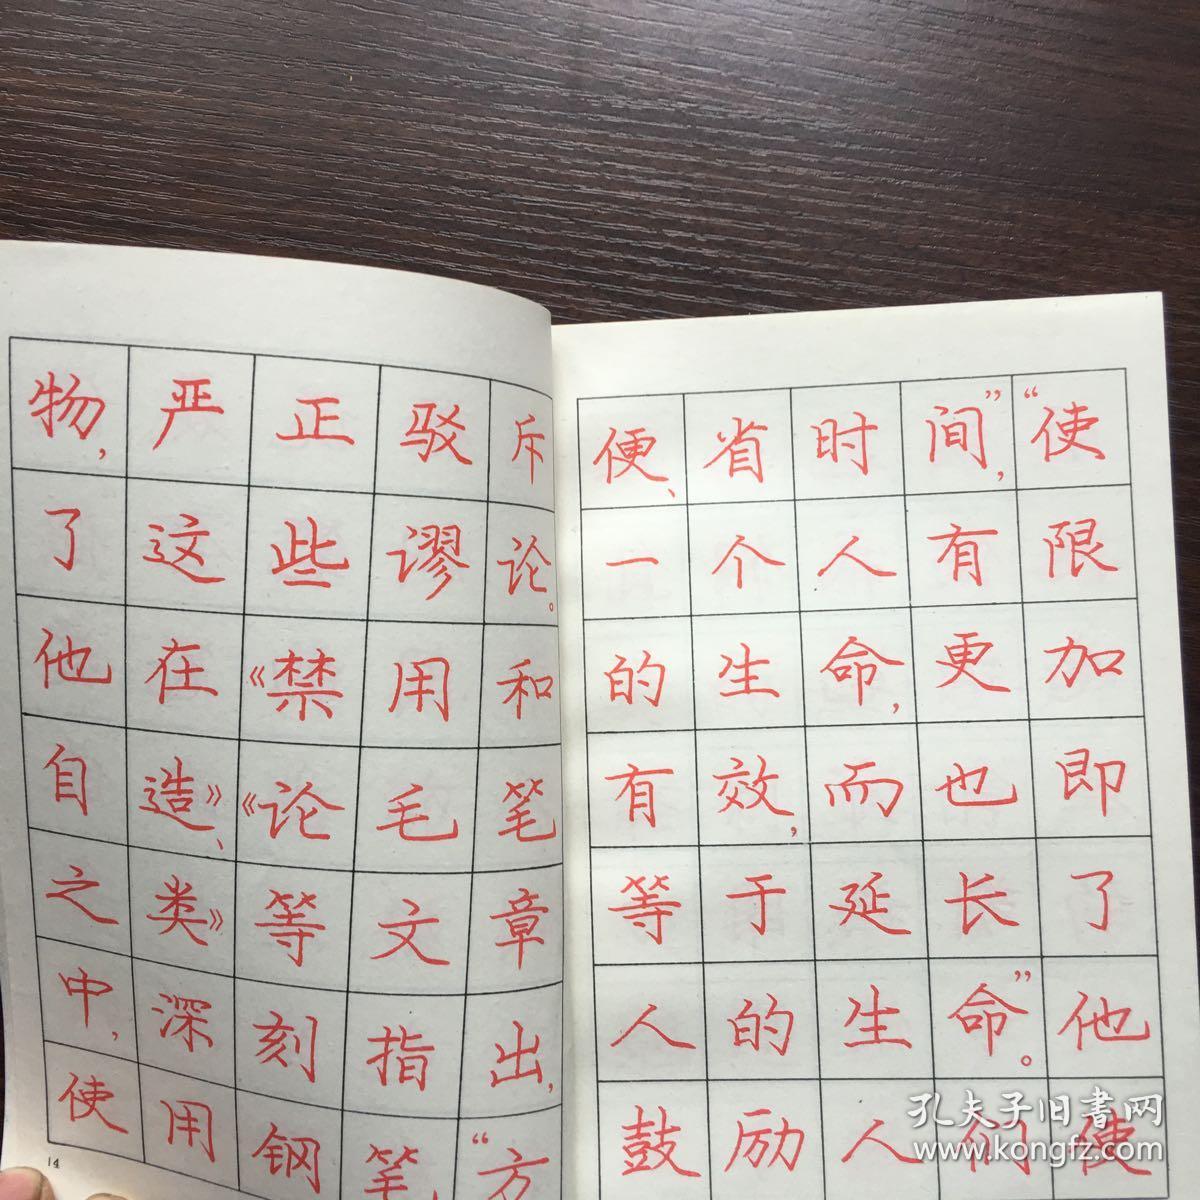 物，严正驳斥
了这些谬论。
他在《禁用和
自造》、《论毛笔
之类》等文章
中，深刻指出，
使用钢笔“方
14
便、省时间”，“使
一个人有限
的生命，更加
有效，而也即
等于延长了
人的生命”。他
鼓励人们使
孔夫子旧书网
www.kongfz.com